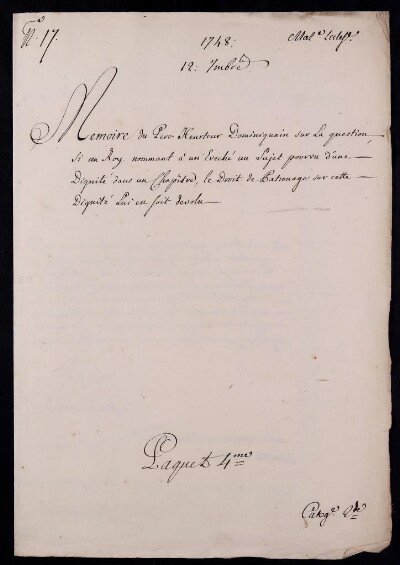 N.º 17.
1748.
Mat.e Eclesq.e
12. 7mbre
Memoire du Pere Heurtour Dominiquain sur La question,
si un Roy nommant à un Eveché un Sujet pourvu d'une
Dignité dans un Chapitre, le Droit de Patronage sur cette
Dignité Lui en soit devolu
Paquet 4.me
Categ.e 2.de